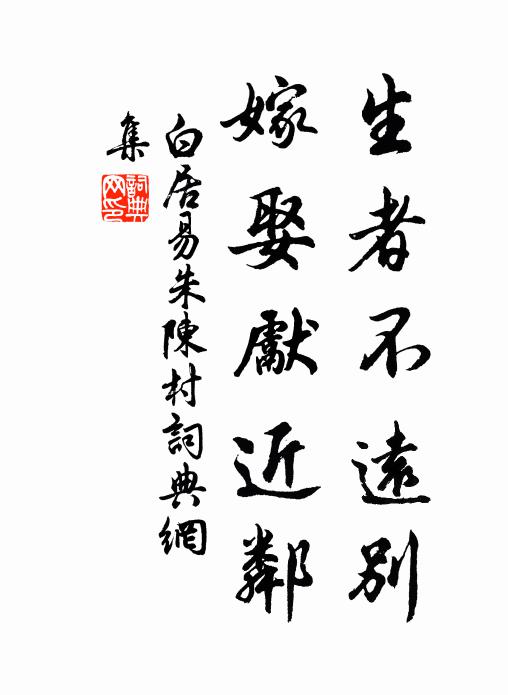 生者不遠別
嫁娶獻近鄰
白居易朱陳村詞典網
集
詞典
网印